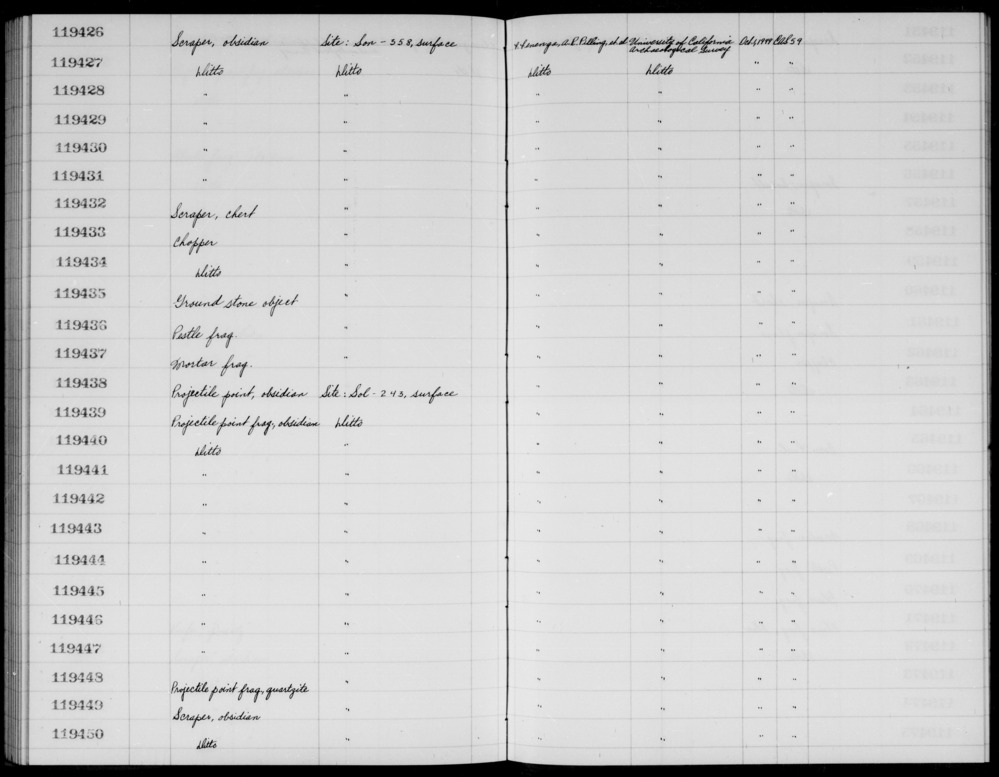 119426 Scraper, obsidian Site: Son-358, surface University of California Archaeological Survey Oct, 1949 59
119427 Ditto Ditto Ditto Ditto " "
119428 " " " " " "
119429 " " " " " "
119430 " " " " " "
119431 " " " " " "
119432 Scraper, chert " " " " "
119433 Chopper " " " " "
119434 Ditto " " " " "
119435 Ground stone object " " " " "
119436 Pestle frag. " " " " "
119437 Mortar frag. " " " " "
119438 Projectile point, obsidian Site: Sol-243, surface " " " "
119439 Projectile point frag, obsidian Ditto " " " "
119440 Ditto " " " " "
119441 " " " " " "
119442 " " " " " "
119443 " " " " " "
119444 " " " " " "
119445 " " " " " "
119446 " " " " " "
119447 " " " " " "
119448 Projectile point frag, quartzite " " " " "
119449 Scraper, obsidian " " " " "
119450 Ditto " " " " "